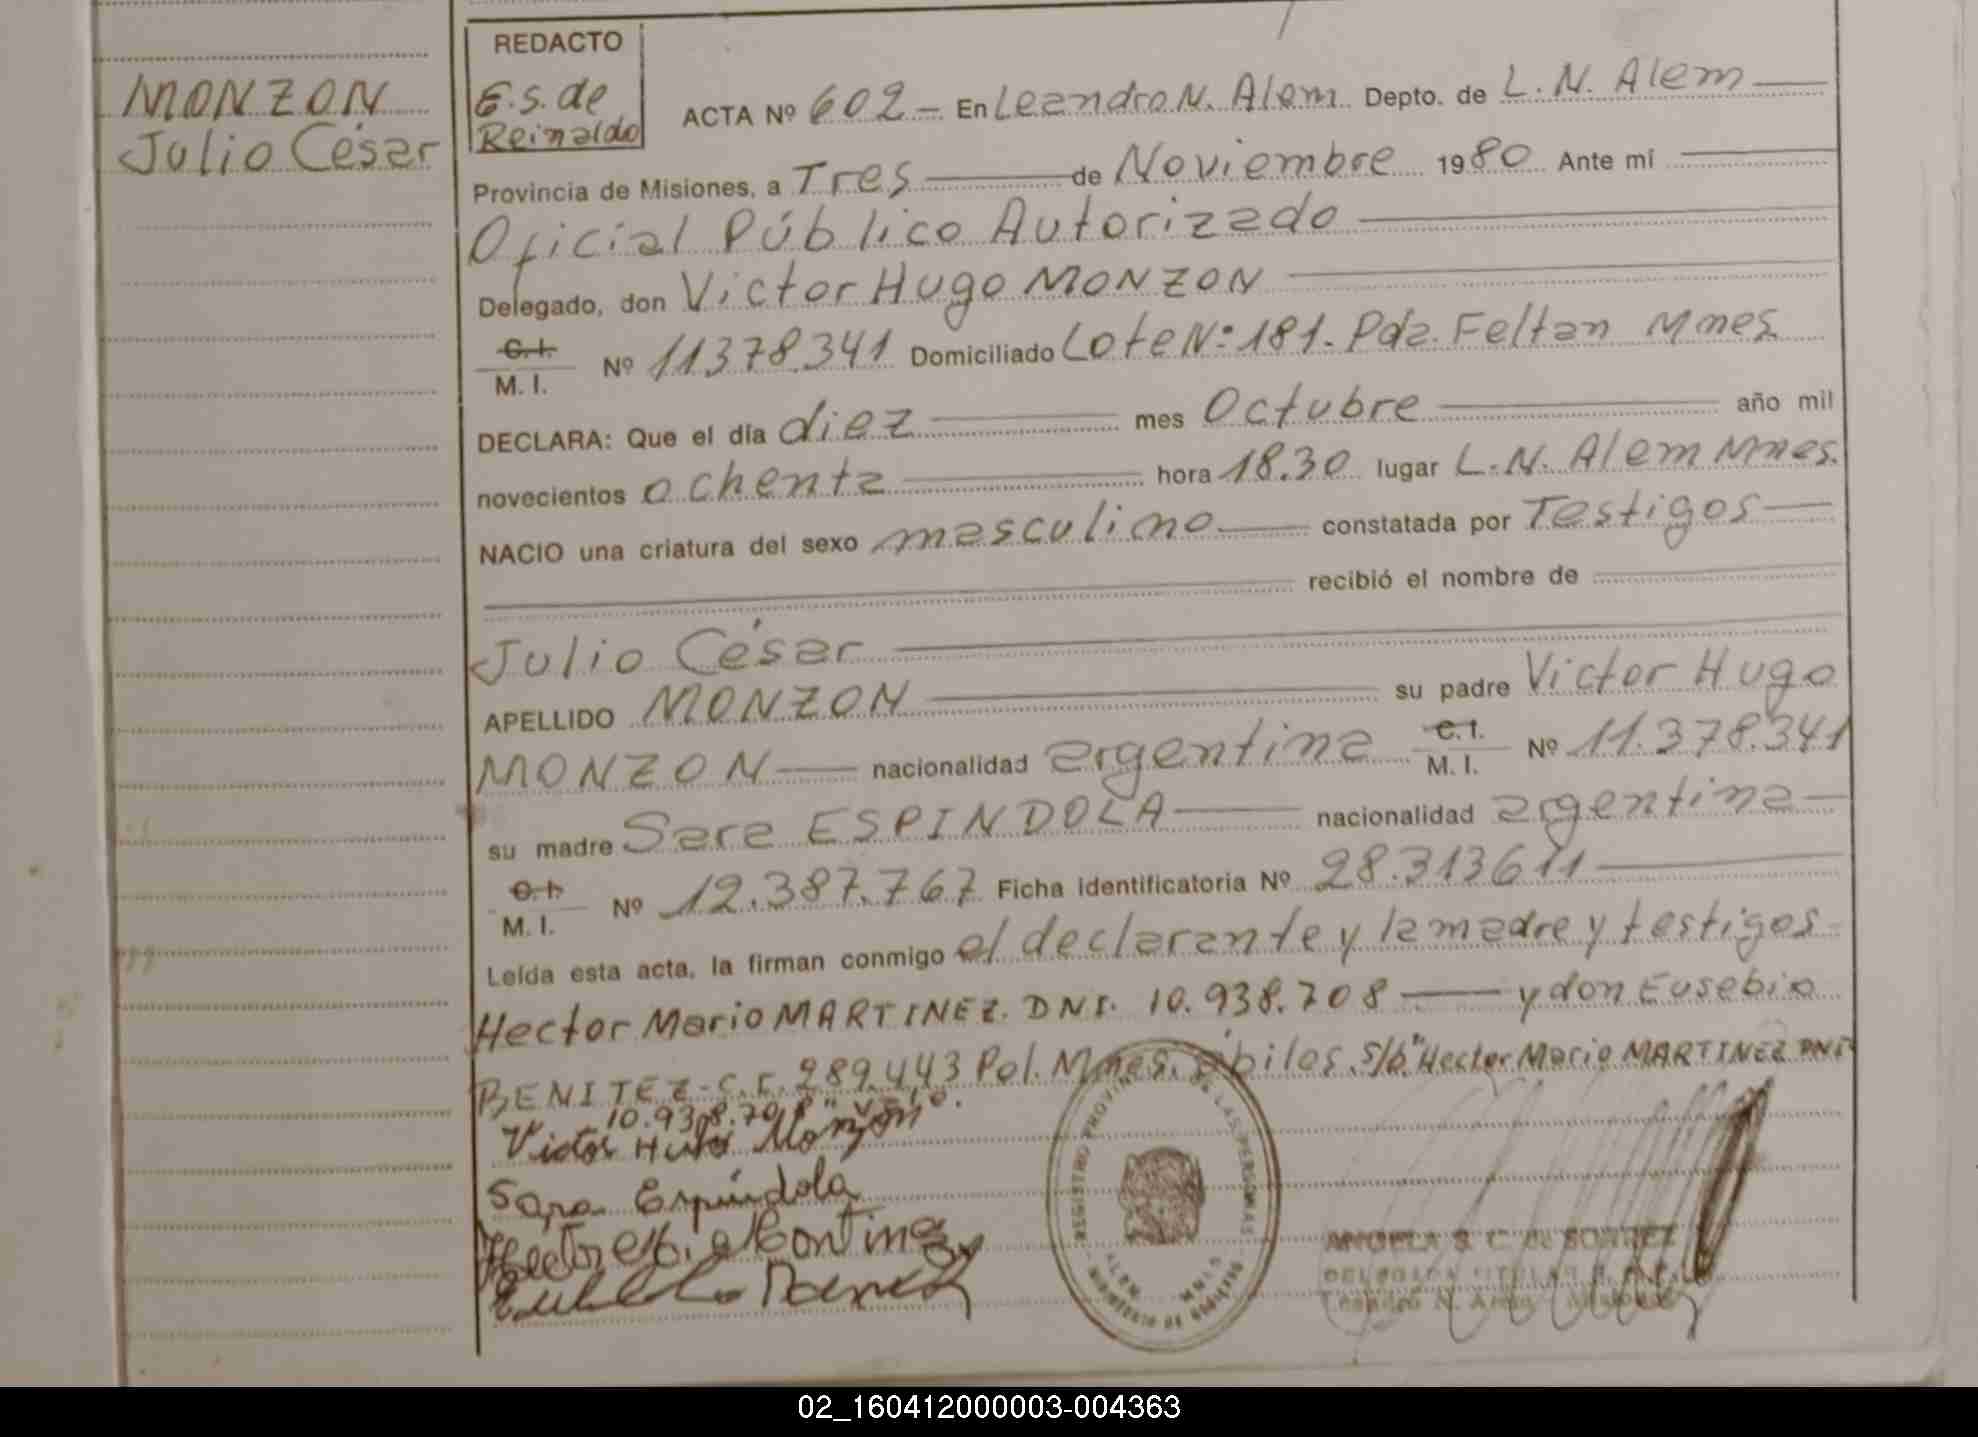 MONZON
Julio César
REDACTO
E.S. de
Reinaldo
ACTA Nº 602 - En Leandro N. Alem Depto. de L. N. Alem
Provincia de Misiones, a Tres de Noviembre 1980 Ante mí
Oficial Público Autorizado
Delegado, don Victor Hugo MONZON
C.I.
M. I. Nº 11378.341 Domiciliado Lote Nº 181. Pda. Feltan Mnes.
DECLARA: Que el día diez mes Octubre año mil
novecientos ochenta hora 18.30 lugar L.N. Alem Mnes.
NACIO una criatura del sexo masculino constatada por Testigos
recibió el nombre de
Julio César
APELLIDO MONZON su padre Victor Hugo
MONZON nacionalidad argentina C.I. M. I. Nº 11.378.341
su madre Sara ESPINDOLA nacionalidad argentina
C.I.
M. I. Nº 12.387.767 Ficha identificatoria Nº 28.313611
Leída esta acta, la firman conmigo el declarante y la madre y testigos
Hector Mario MARTINEZ. DNI. 10.938.708 y don Eusebio
BENITEZ - C.I. 289.443 Pol. Mnes. ábiles. S/b. "Hector Mario MARTINEZ DNI
10.938.708" vale.
Victor Hugo Monzón
Sara Espíndola
REGISTRO PROVINCIAL DE LAS PERSONAS
ALEM MNES
MINISTERIO DE GOBIERNO
ANGELA S. C. de
DELEGADA TITULAR
Leandro N. Alem Misiones
02_160412000003-004363